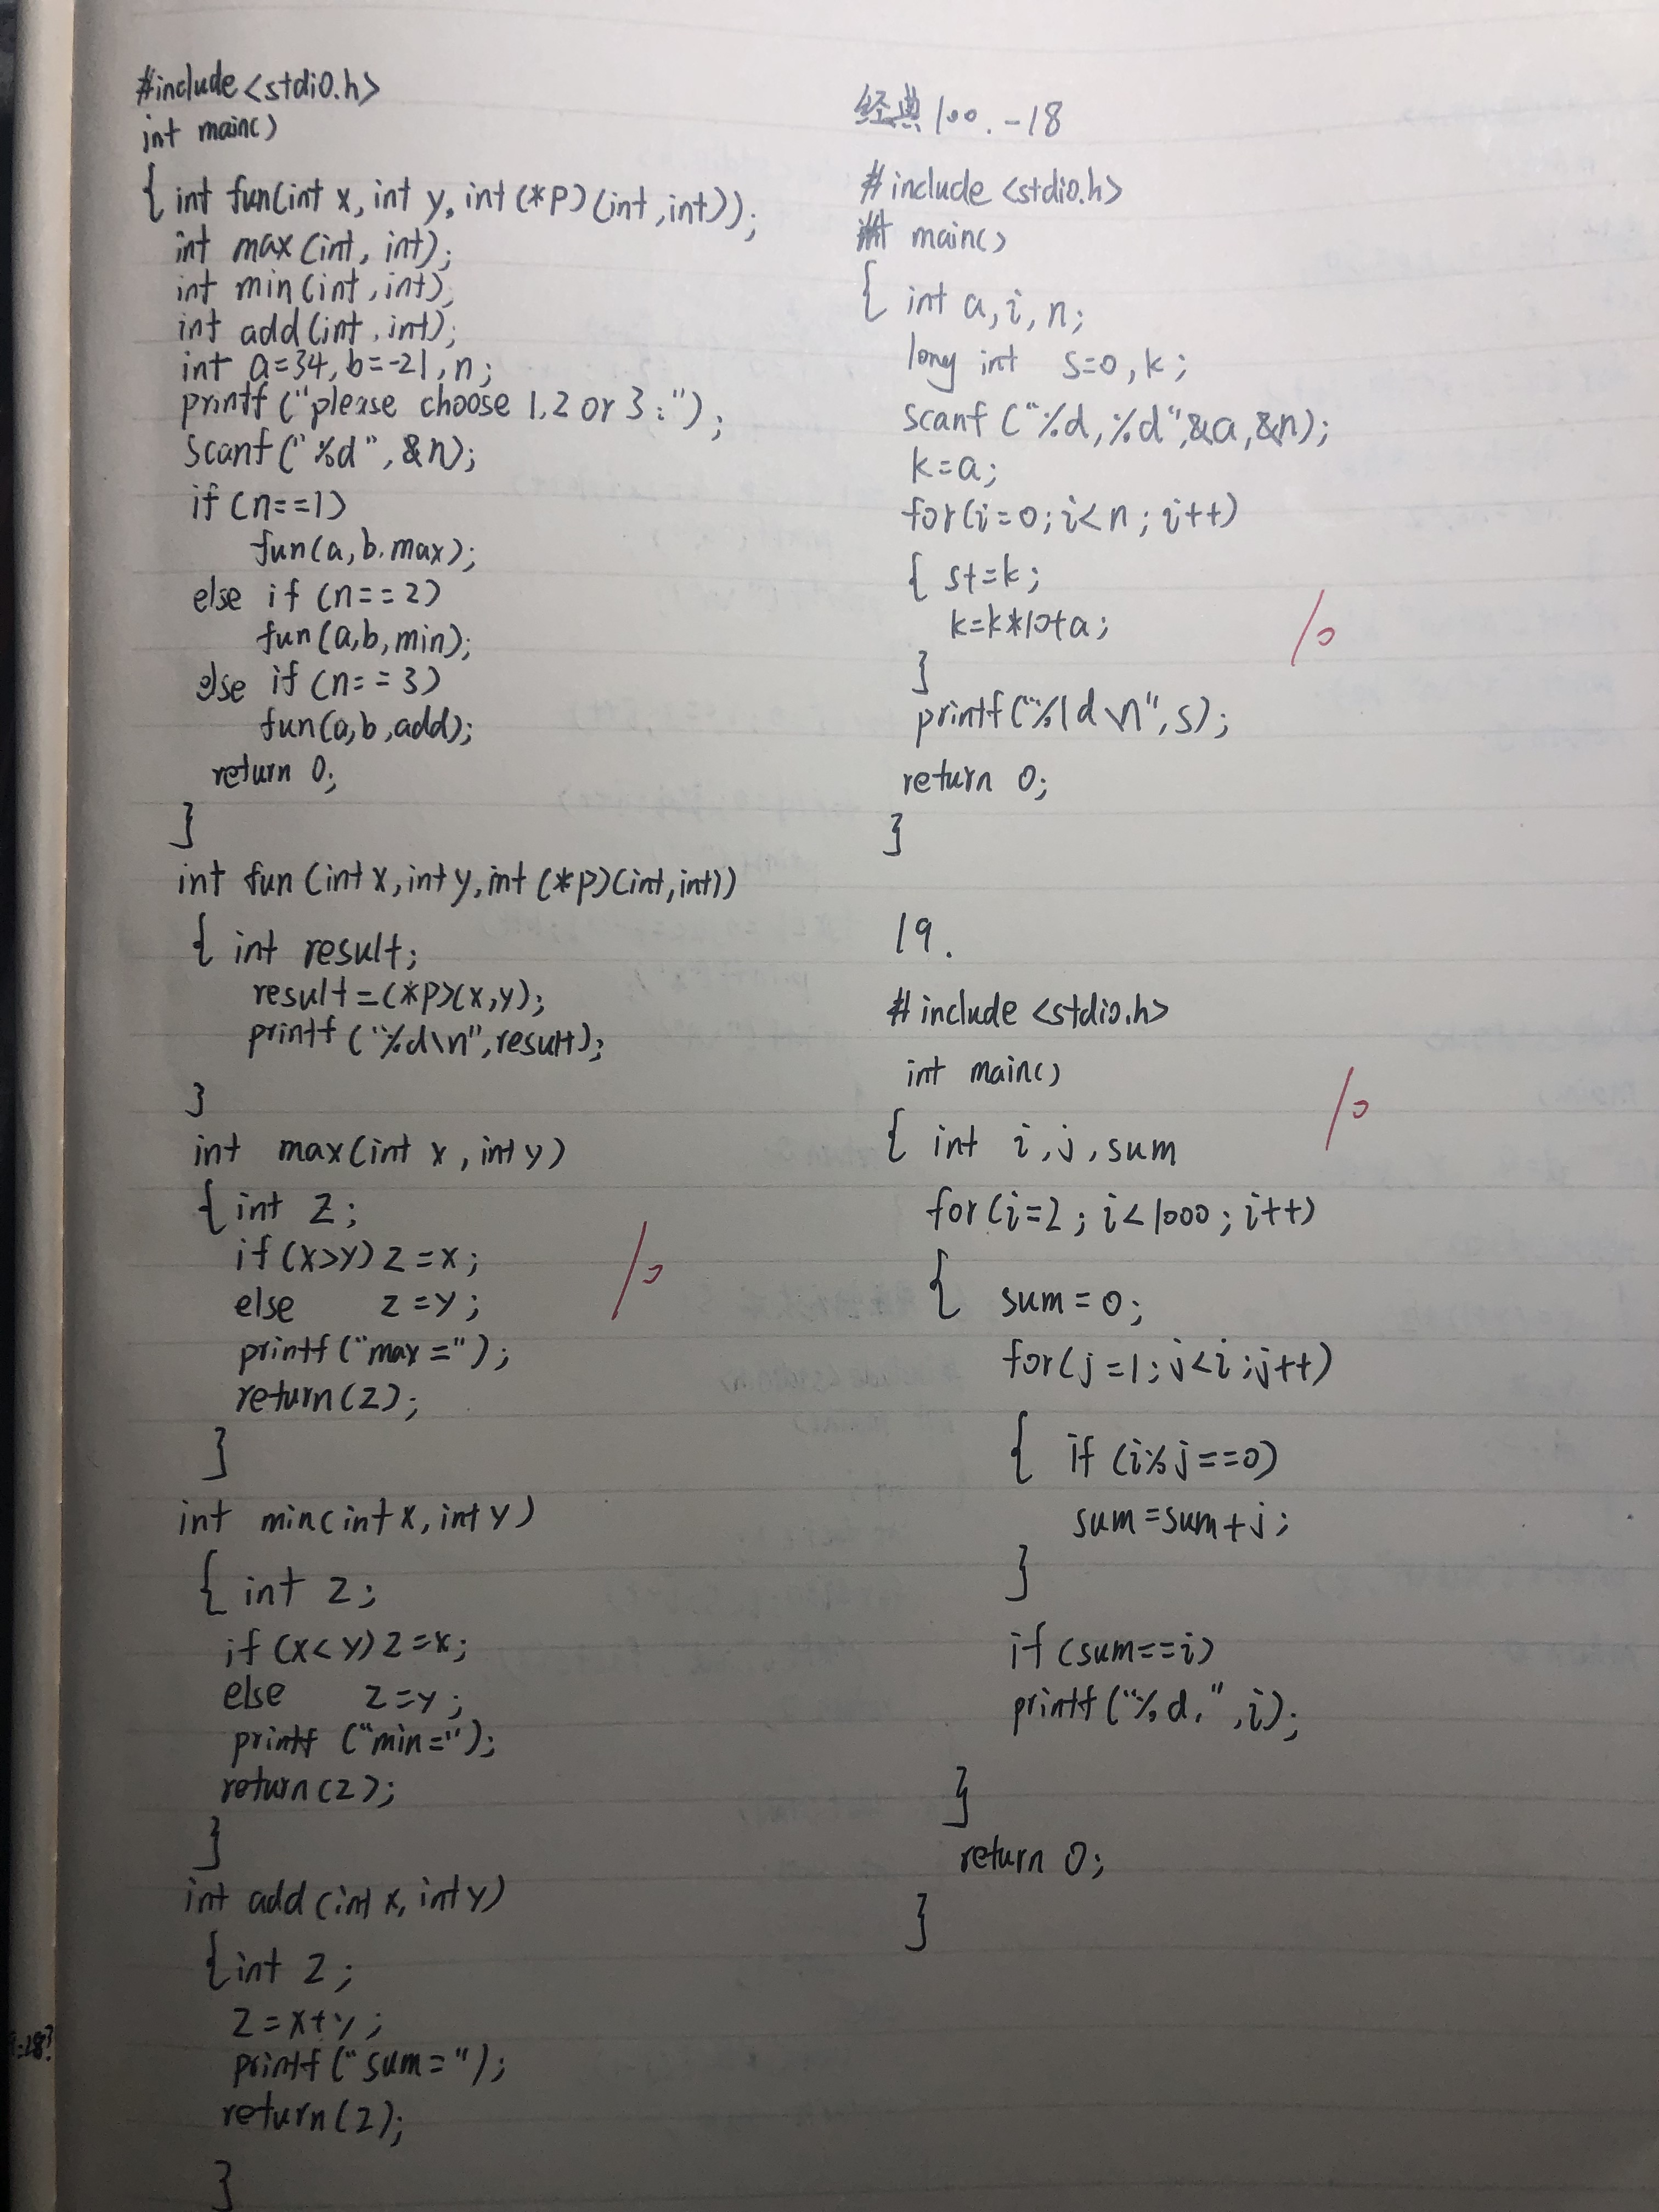 #include<stdio.h>
int main()
{ int fun(int x, int y, int(*p)(int,int));
int max(int, int);
int min(int,int);
int add(int,int);
int a=34,b=-21,n;
printf("please choose 1,2 or 3:");
scanf("%d",&n);
if(n==1)
fun(a,b.max);
else if(n==2)
fun(a,b,min);
else if(n==3)
fun(a,b,add);
return 0;
}
int fun(int x,int y,int(*p)(int,int))
{ int result;
result=(*p)(x,y);
printf("%d\n",result);
}
int max(int x,int y)
{int z;
if(x>y)z=x;
else z=y;
printf("max=");
return(z);
}
int min(int x,int y)
{int z;
if(x<y)z=x;
else z=y;
printf("min=");
return(z);
}
int add(int x,int y)
{int z;
z=x+y;
printf("sum=");
return(z);
}
经典100.-18
#include<stdio.h>
int main()
{ int a,i,n;
long int s=0,k;
scanf("%d,%d",&a,&n);
k=a;
for(i=0;i<n;i++)
{ s+=k;
k=k*10+a;
}
printf("%ld\n",s);
return 0;
}
19.
#include<stdio.h>
int main()
{ int i,j,sum
for(i=2;i<1000;i++)
{ sum=0;
for(j=1;j<i;j++)
{ if(i%j==0)
sum=sum+j;
}
if(sum==i)
printf("%d,",i);
}
return 0;
}